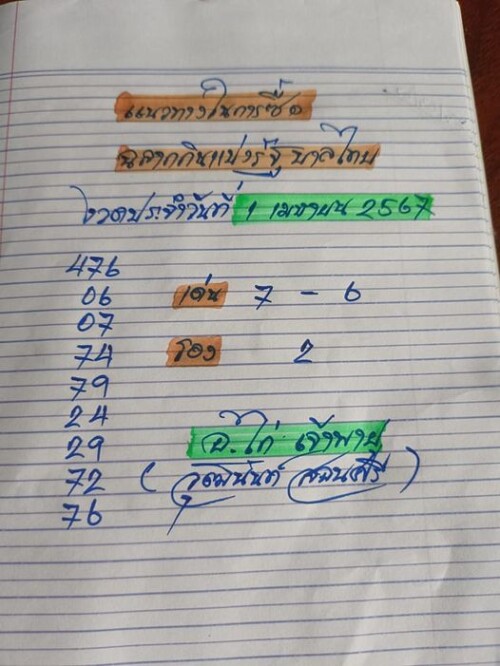 แนวทางในการซื้อ
ฉลากกินแบ่งรัฐบาลไทย
งวดประจำวันที่ 1 เมษายน 2567
476
06 เด่น 7 - 6
07
74 รอง 2
79
24
29 อ. ไก่ เจ้าพายุ
72 (วุฒินันท์ สอนศรี)
76